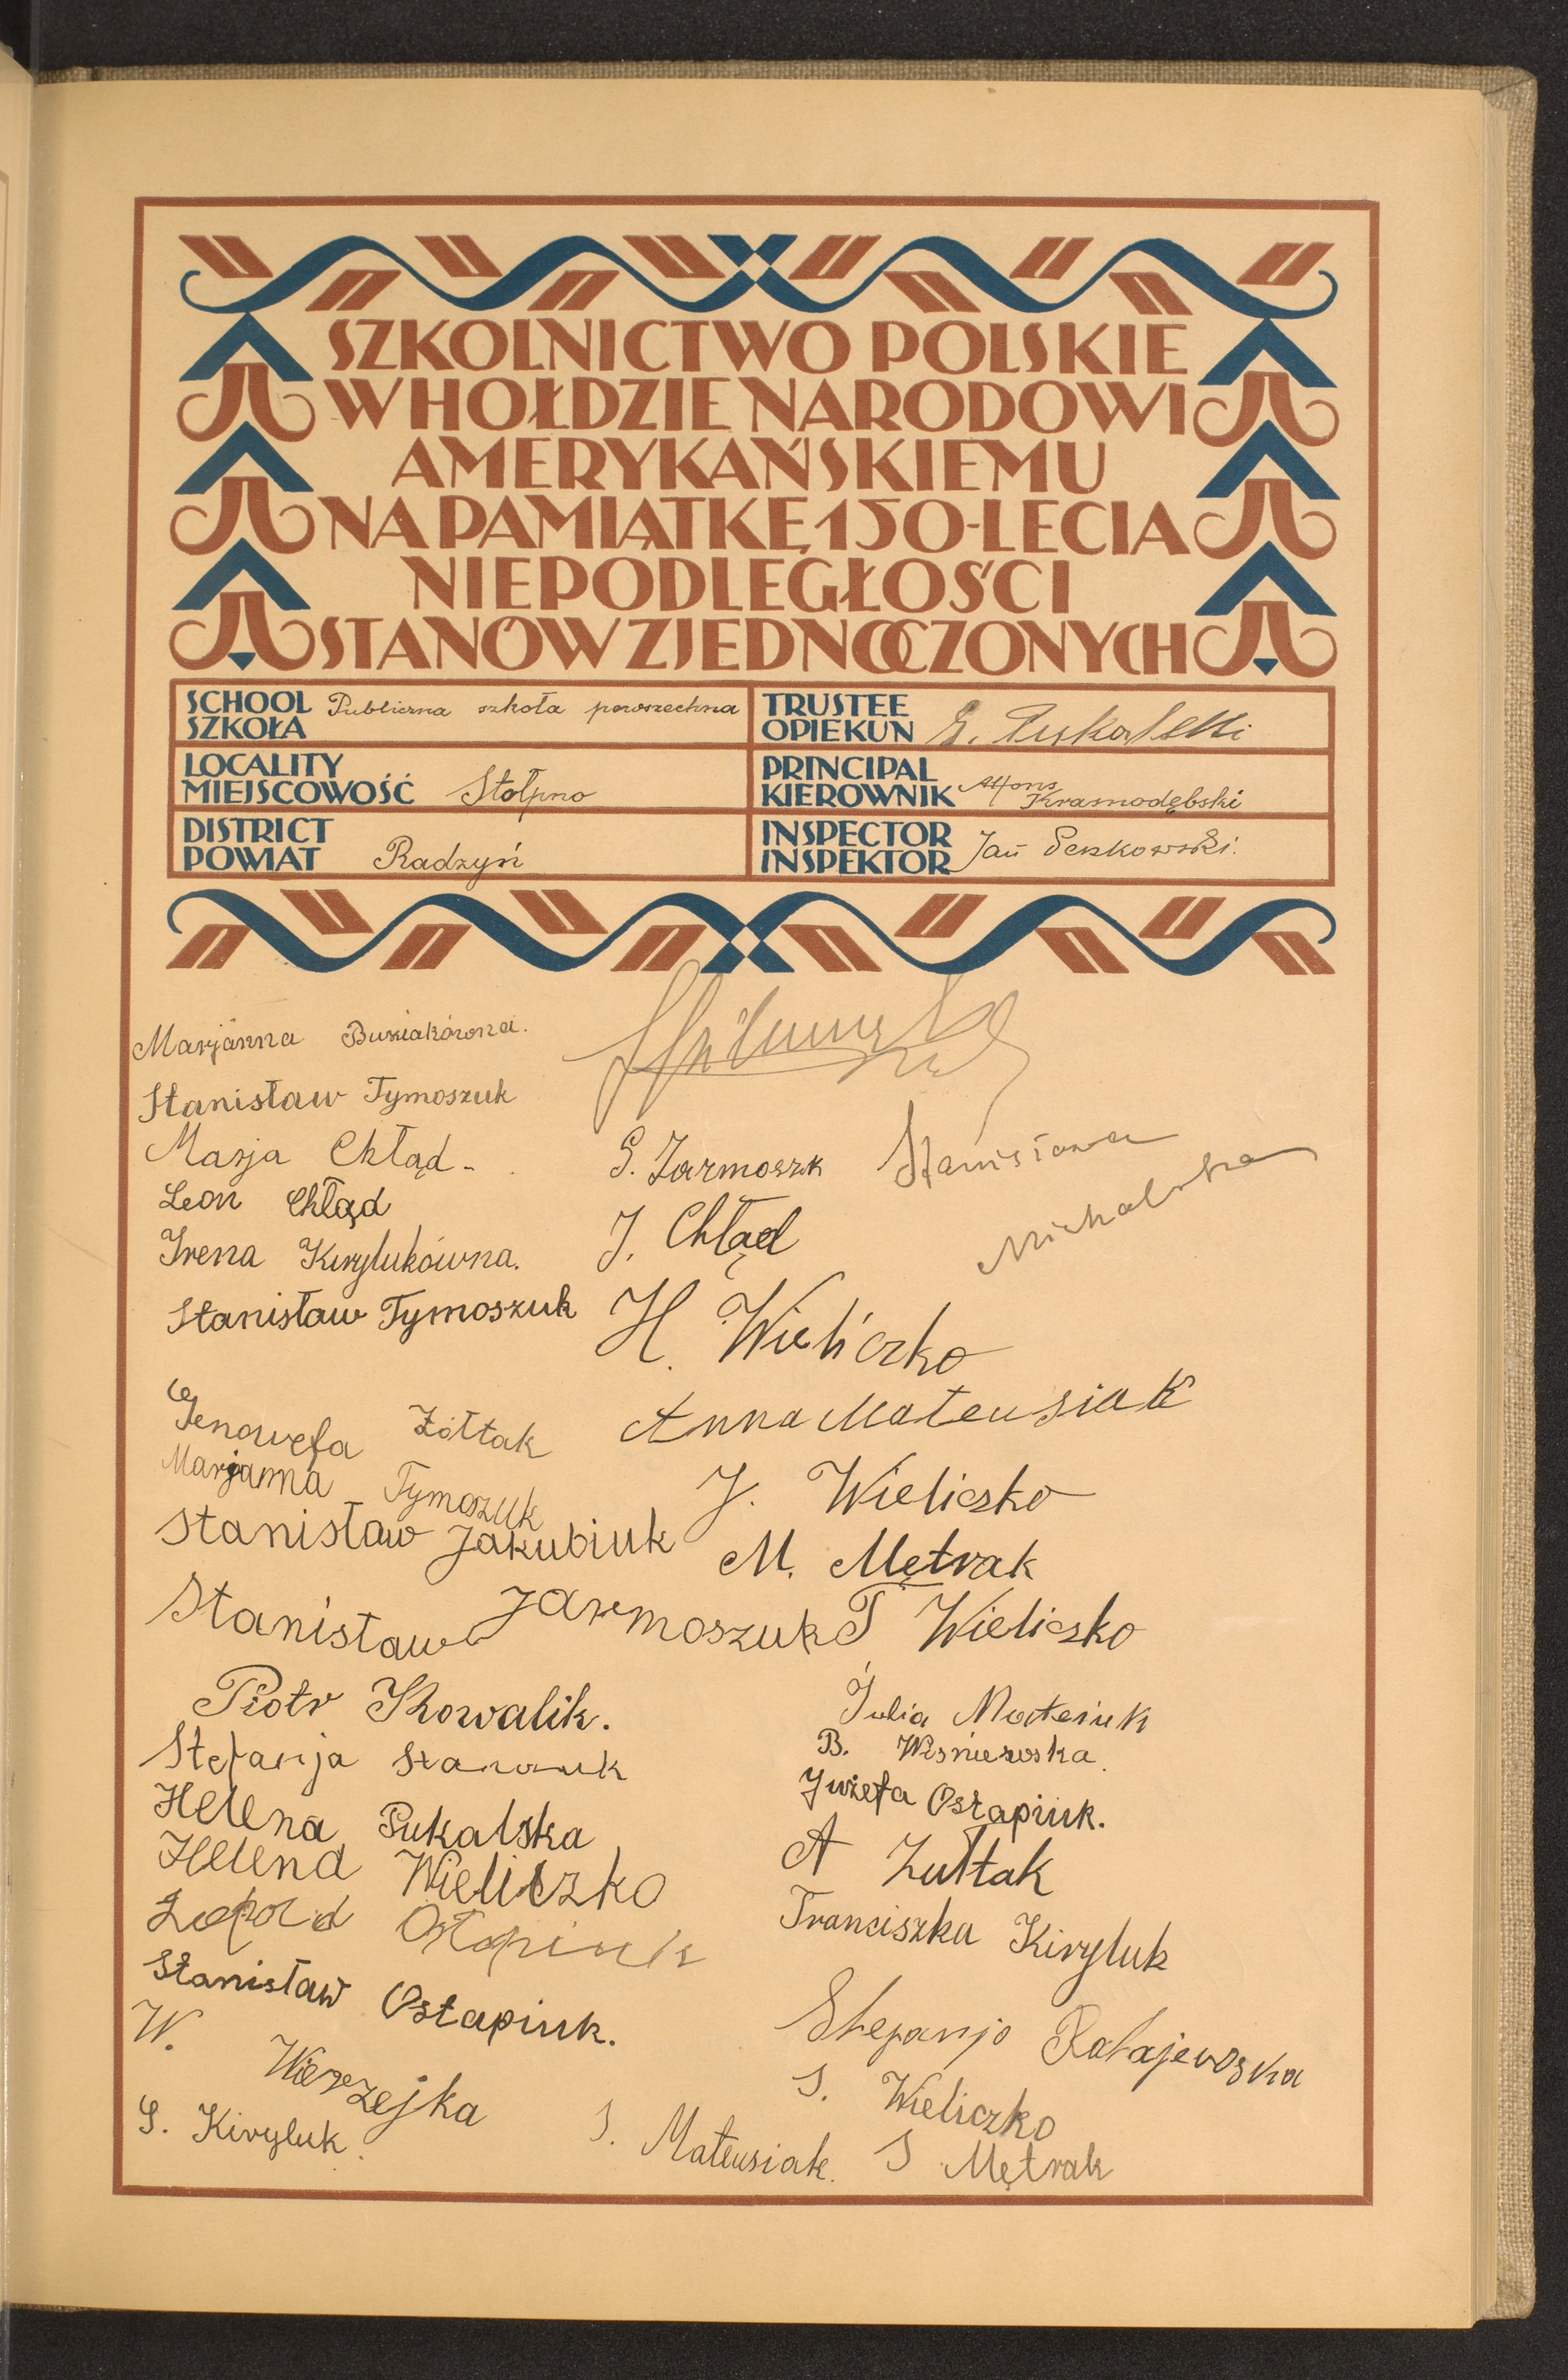 SZKOLNICTWO POLSKIE
W HOŁDZIE NARODOWI
AMERYKAŃSKIEMU
NA PAMIĄTKĘ 150-LECIA
NIEPODLEGŁOŚCI
STANÓW ZJEDNOCZONYCH
SCHOOL
SZKOŁA Publiczna szkoła powszechna
TRUSTEE
OPIEKUN
LOCALITY
MIEJSCOWOŚĆ Stołpno
PRINCIPAL
KIEROWNIK Alfons
Krasnodębski
DISTRICT
POWIAT Radzyń
INSPECTOR
INSPEKTOR Jan
Marjanna
Stanisław Tymoszuk
Marja Chłąd
Leon Chłąd
Irena Kirylukówna.
Stanisław Tymoszuk
Genowefa Żółtak
Marjanna Tymoszuk
Stanisław Jakubiuk
Stanisław Jarmoszuk
Piotr Kowalik.
Stefanja
Helena Pukalska
Helena Wieliczko
Ostapiuk
Stanisław Ostapiuk.
W. Wierzejka
S. Kiryluk.
S. Jarmoszk
Stanisława
Michalska
J. Chłąd
H. Wieliczko
Anna Mateusiak
J. Wieliczko
M. Mętrak
T Wieliczko
Julia Mateiuk
B. Wiśniewska
Juzefa Ostapiuk.
A Żułtak
Franciszka Kiryluk
Stefanja Ratajewska
S. Wieliczko
S. Mateusiak.
S Mętrak